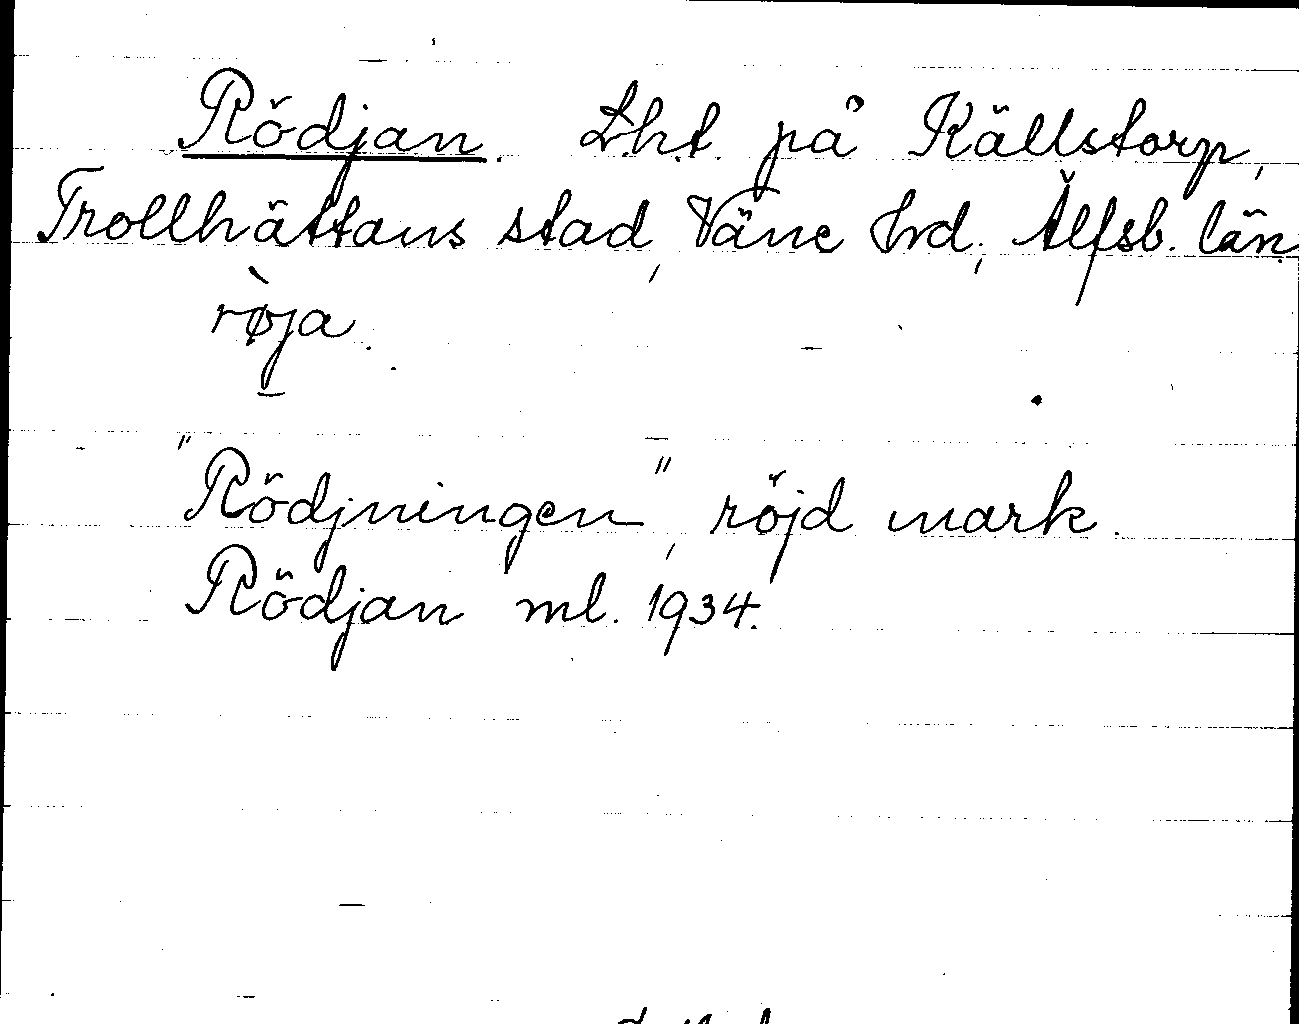 Rödjan. Lht. på Källstorp,
Trollhättans stad, Väne hd, Älfsb. län
rø̀ja.
"Rödjningen", röjd mark.
Rödjan ml. 1934.